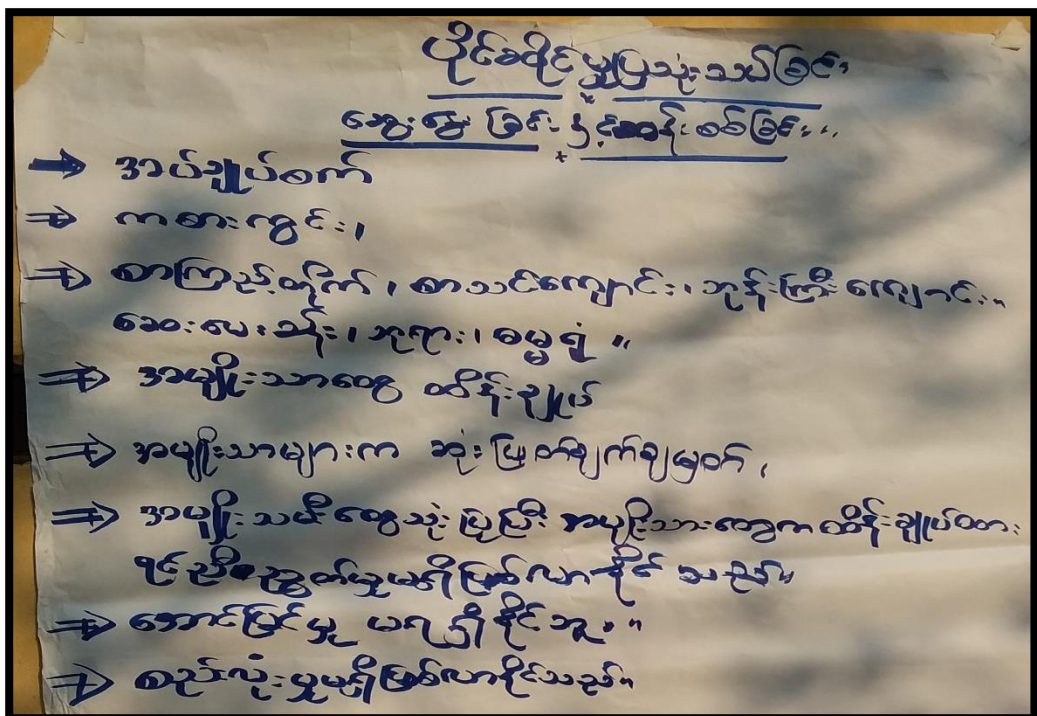 ပိုင်ဆိုင်မှုပြုသုံးသပ်ခြင်း
ဆွေးနွေးခြင်း နှင့်ဆန်းစစ်ခြင်း
⇒ အပ်ချုပ်စက်
⇒ ကစားကွင်း၊
⇒ စာကြည့်တိုက်၊ စာသင်ကျောင်း၊ ဘုန်းကြီးကျောင်း။
ဆေးပေးခန်း၊ ဘုရား၊ ဓမ္မရုံ ။
⇒ အမျိုးသားတွေ ထိန်းချုပ်
⇒ အမျိုးသားများက ဆုံးဖြတ်ချက်ချမှတ်၊
⇒ အမျိုးသမီးတွေသုံးပြုပြီး အမျိုးသားတွေကထိန်းချုပ်ထား
ရင်ညီညွတ်မှုမရှိဖြစ်လာနိုင်သည်။
⇒ အောင်မြင်မှု မရရှိနိုင်ဘူ။
⇒ စည်းလုံးမှုမရှိဖြစ်လာနိုင်သည်။